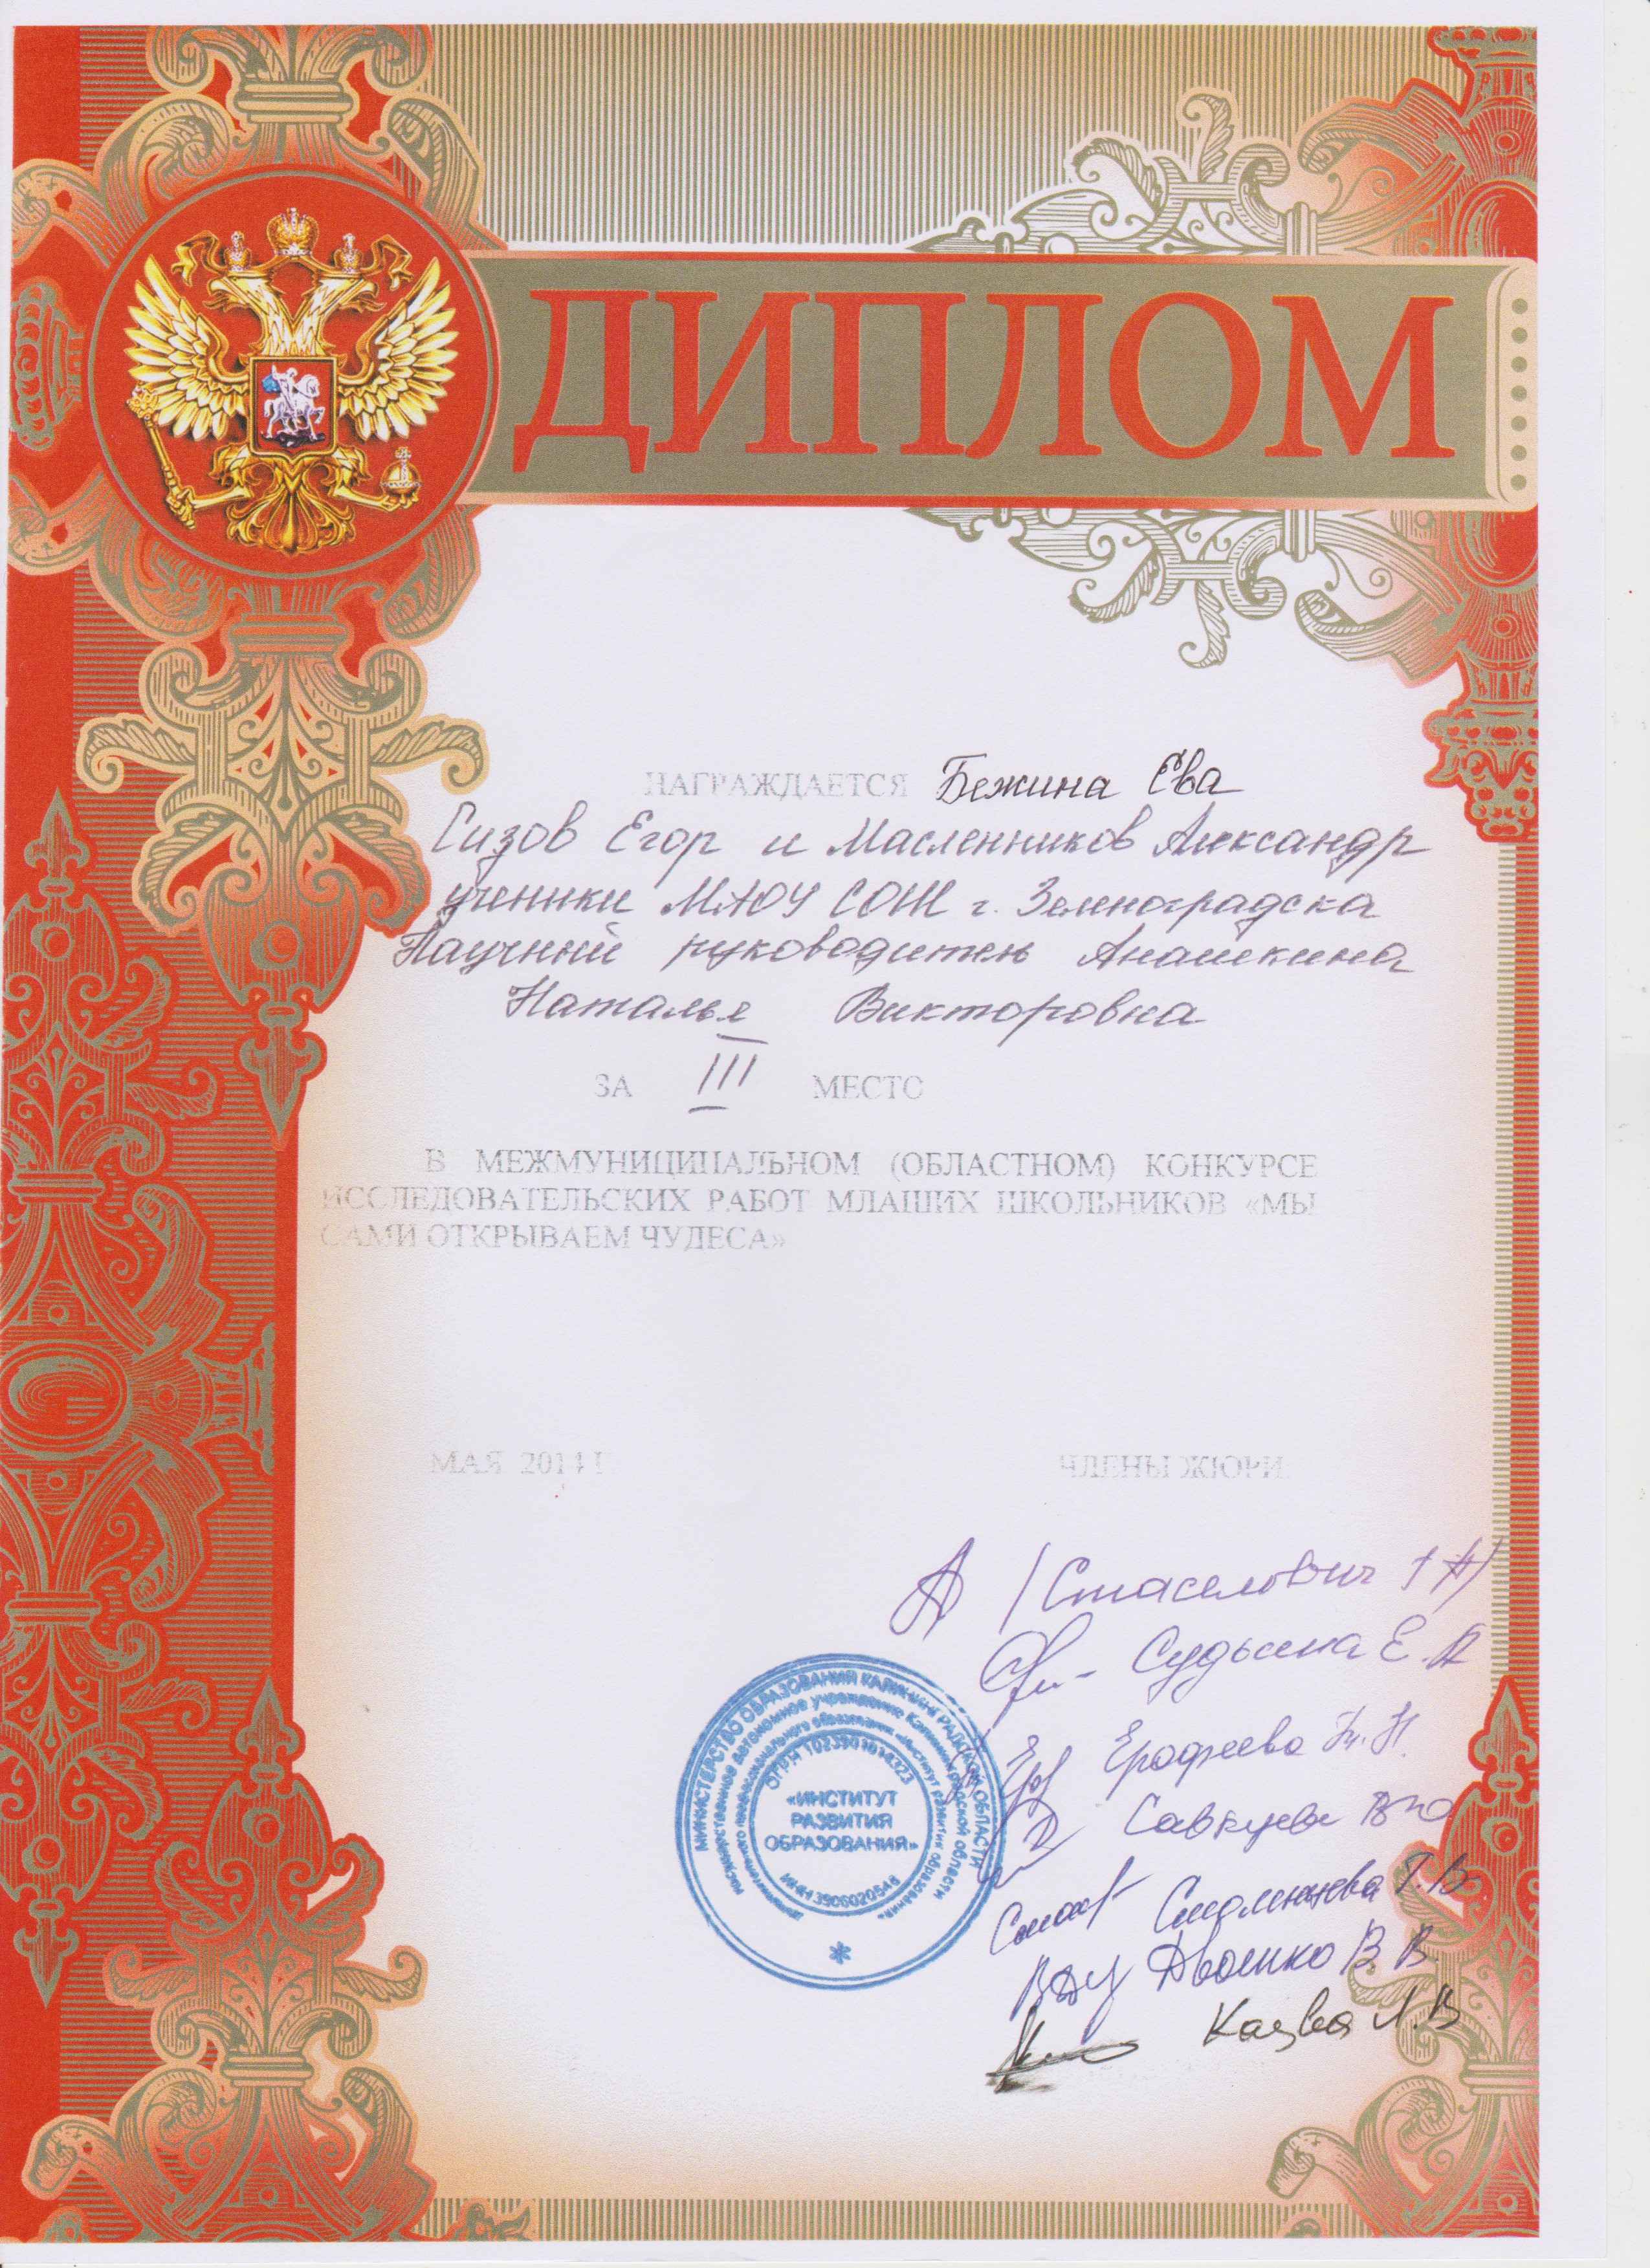 ДИПЛОМ
НАГРАЖДАЕТСЯ Бежина Ева
Сизов Егор и Масленников Александр
ученики МАОУ СОШ г. Зеленоградска
Научный руководитель Анашкина
Наталья Викторовна
ЗА III МЕСТО
В МЕЖМУНИЦИПАЛЬНОМ (ОБЛАСТНОМ) КОНКУРСЕ
ИССЛЕДОВАТЕЛЬСКИХ РАБОТ МЛАШИХ ШКОЛЬНИКОВ «МЫ
САМИ ОТКРЫВАЕМ ЧУДЕСА»
МАЯ 2014 Г.
ЧЛЕНЫ ЖЮРИ:
Стаселович
Е. А
Ерофеева Н.
Смоленцева Г. В
Двоенко В. В.
Л. В
МИНИСТЕРСТВО ОБРАЗОВАНИЯ КАЛИНИНГРАДСКОЙ ОБЛАСТИ
государственное автономное учреждение Калининградской области
дополнительного профессионального образования «Институт развития образования»
ОГРН
«ИНСТИТУТ
РАЗВИТИЯ
ОБРАЗОВАНИЯ»
ИНН 3906020548